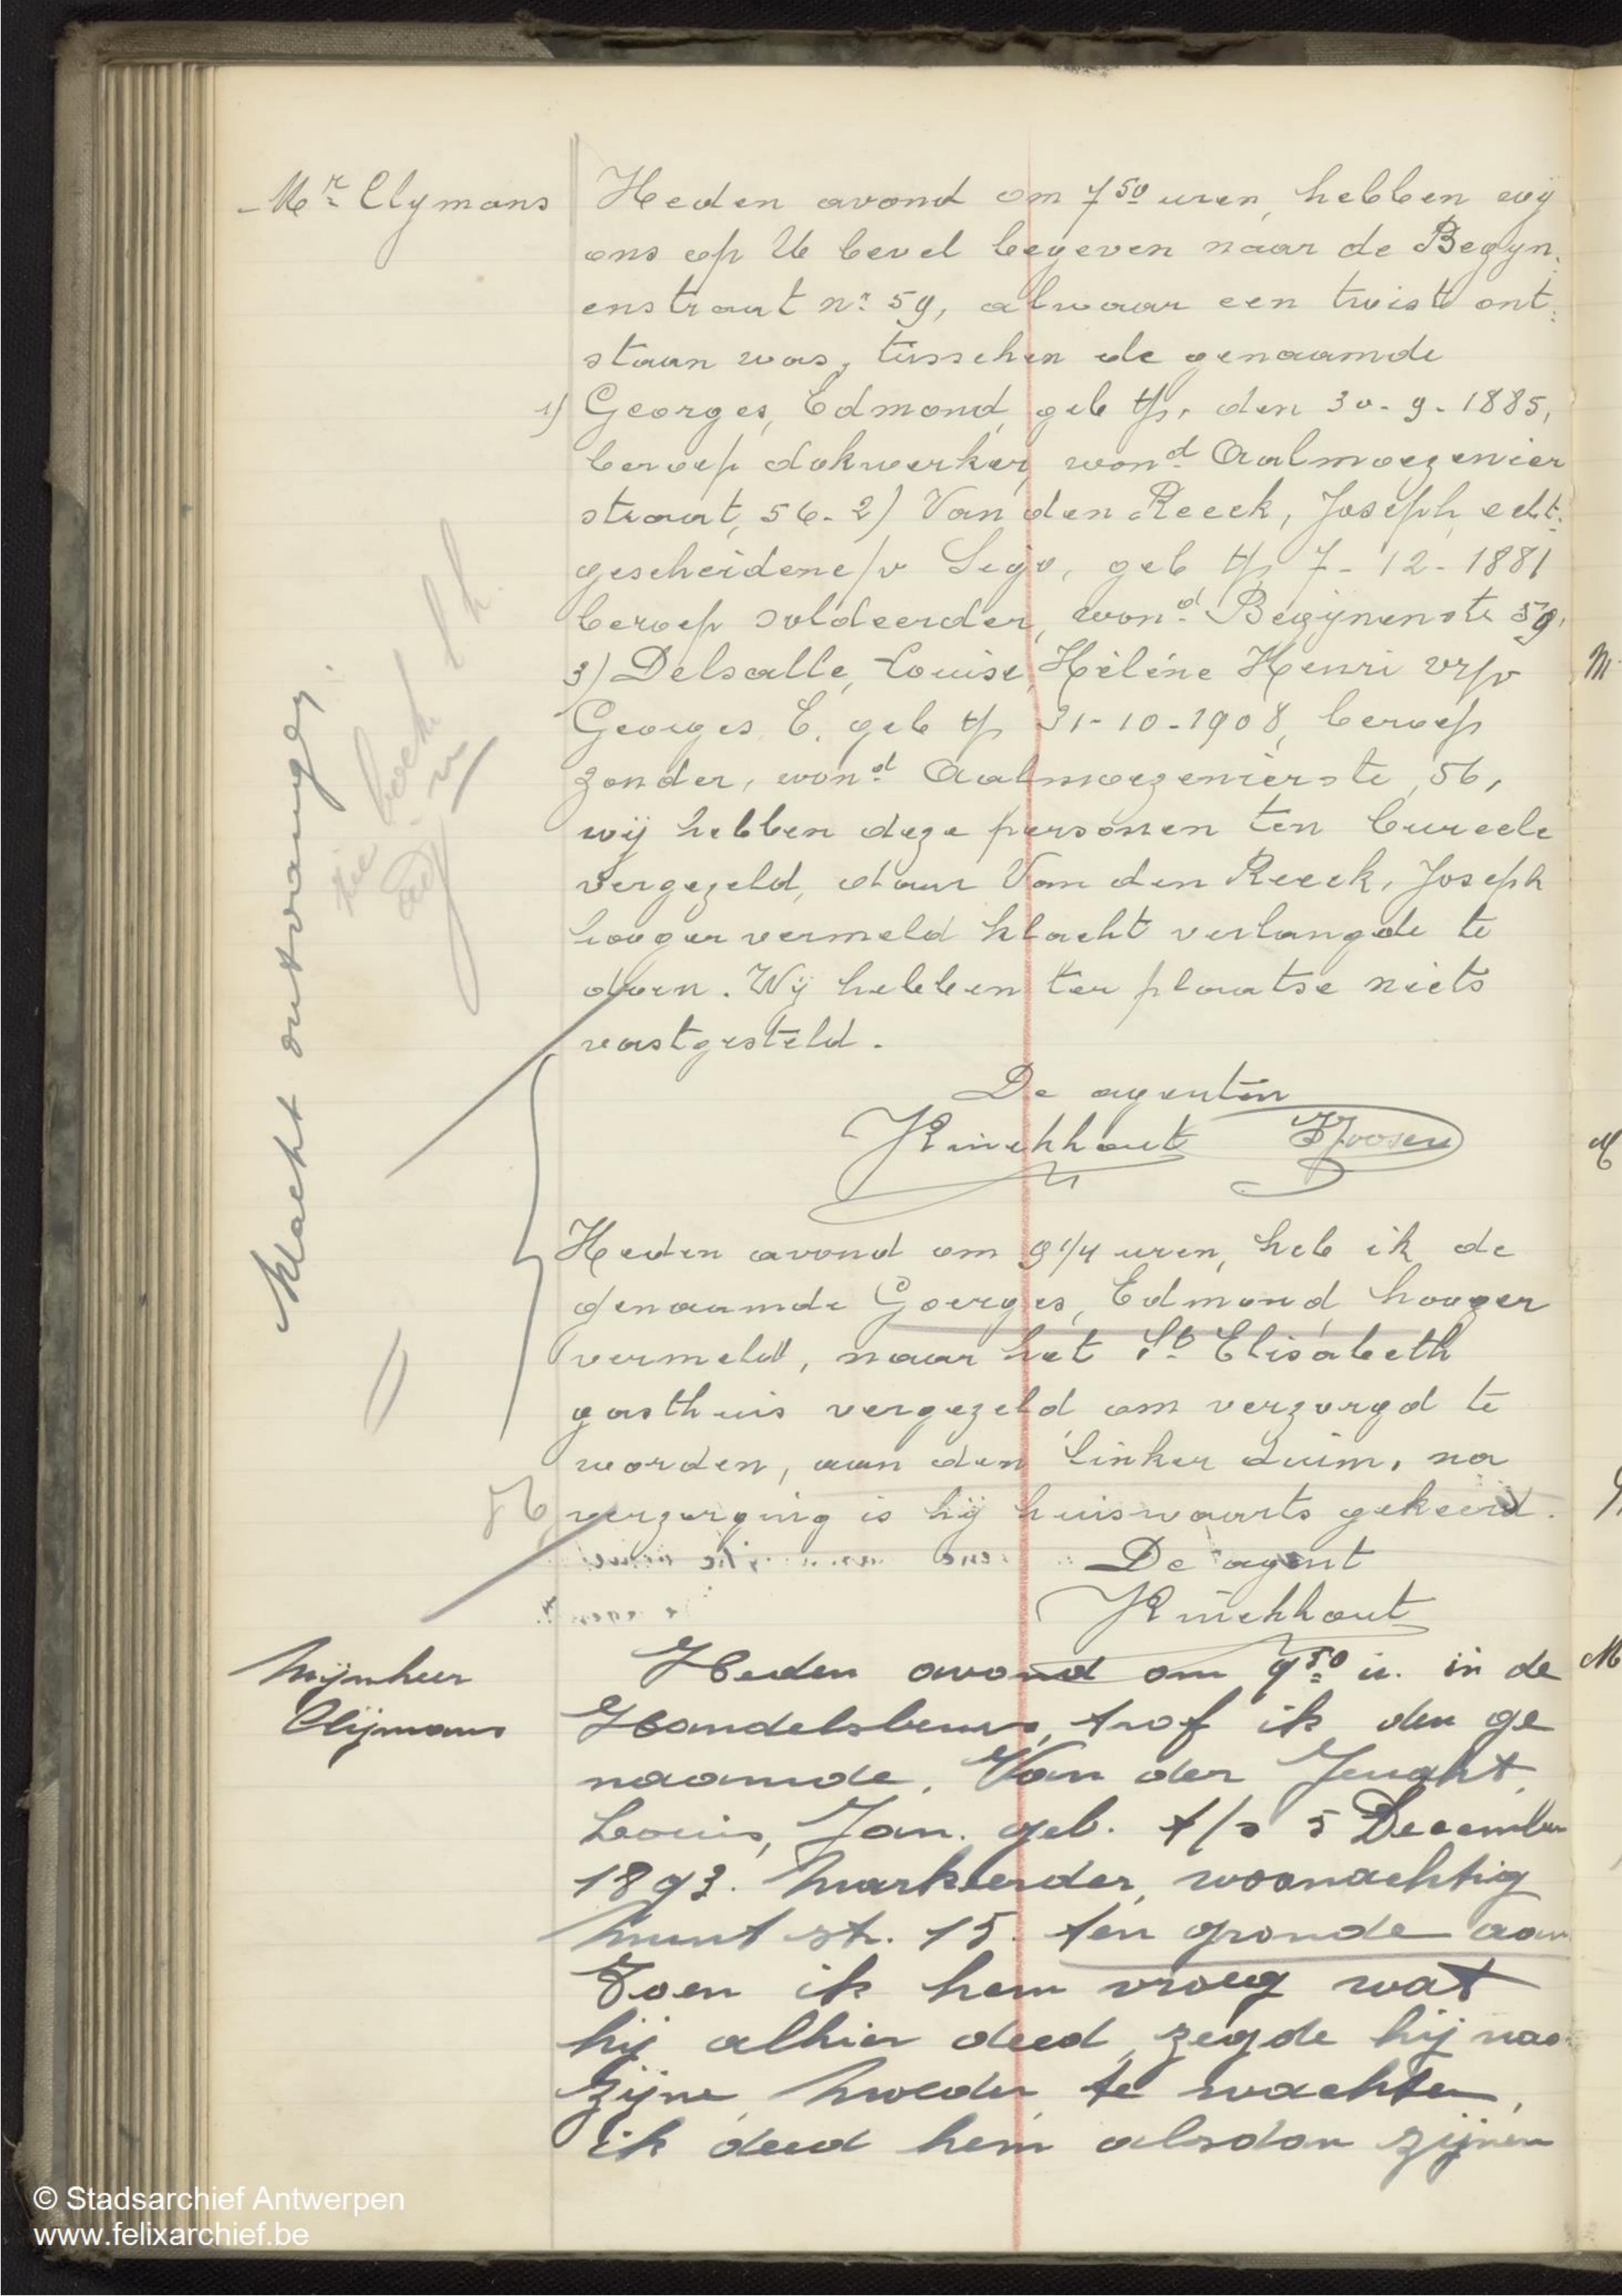 Mr Clymans
Heden avond om 7 50 uren, hebben wij
ons op U bevel begeven naar de Begyn.
enstraat nr 59, alwaar een twist ont:
staan was, tusschen de genaamde
1) Georges, Edmond, geb t/p, den 30-9-1885,
beroep dokwerker, wond Aalmoezenier
straat, 56-2) Van den Reeck, Joseph, echt.
gescheidene/v Segv, geb t/p 7-12-1881
beroep soldeerder, wond Begijnenstr 59,
3) Delsalle, Louise, Hélène Henri vr/v
Georges E. geb t/p 31-10-1908, beroep
zonder, wond Aalmoezenierstr, 56,
wij hebben deze personen ten bureele
vergezeld, daar Van den Reeck, Joseph
hooger vermeld klacht verlangde te
doen. Wij hebben ter plaatse niets
vastgesteld.
De agenten
JRinckhout Joosen
Klacht ontvangen.
zie boek
Heden avond om 9 1/4 uren, heb ik de
genaamde Goerges, Edmond, hooger
vermeld, naar het St Elisabeth
gasthuis vergezeld om verzorgd te
worden, aan den linker duim, na
verzorging is hij huiswaarts gekeerd.
De agent
JRinckhout
Mijnheer
Clijmans
Heden avond om 9 50 u. in de
Handelsbeurs, trof ik den ge
naamde, Van der Jeught,
Louis, Jan. geb. t/s 5 December
1893. Markeerder, woonachtig
Munt st. 15. ten gronde aan
Toen ik hem vroeg wat
hij alhier deed, zegde hij naa
zijne moeder te wachten,
ik deed hem alsdan zijnen
© Stadsarchief Antwerpen
www.felixarchief.be